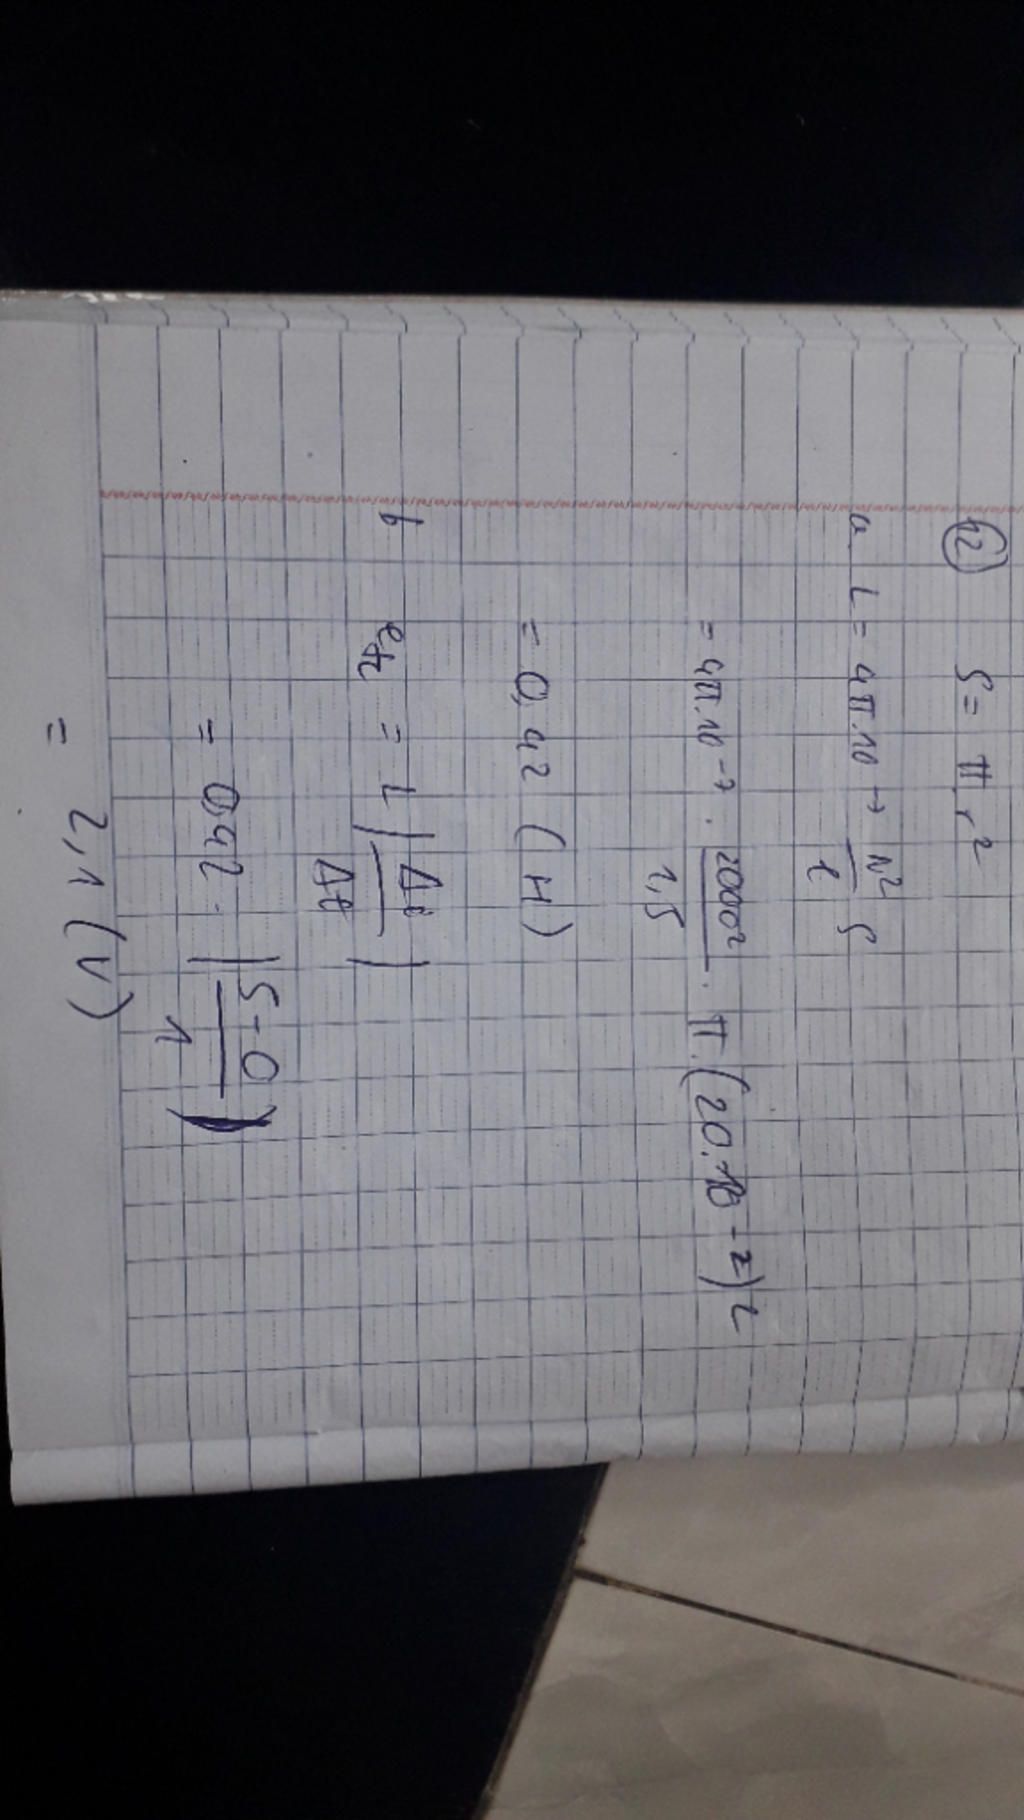 12 S = π r²
a. L = 4π.10⁻⁷ N²/l S
= 4π.10⁻⁷ . 2000²/1,5 . π.(20.10⁻²)²
= 0,42 (H)
b etc = L |Δi/Δt|
= 0,42 . |5-0/1|
= 2,1 (V)